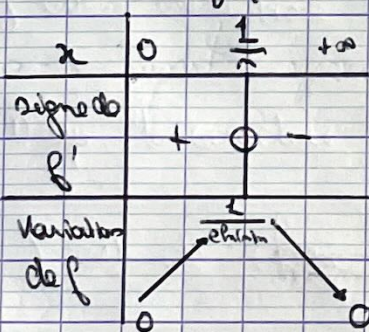 x 0 1/n +∞
signe de
f' + 0 −
Variations 1
de f
0 0